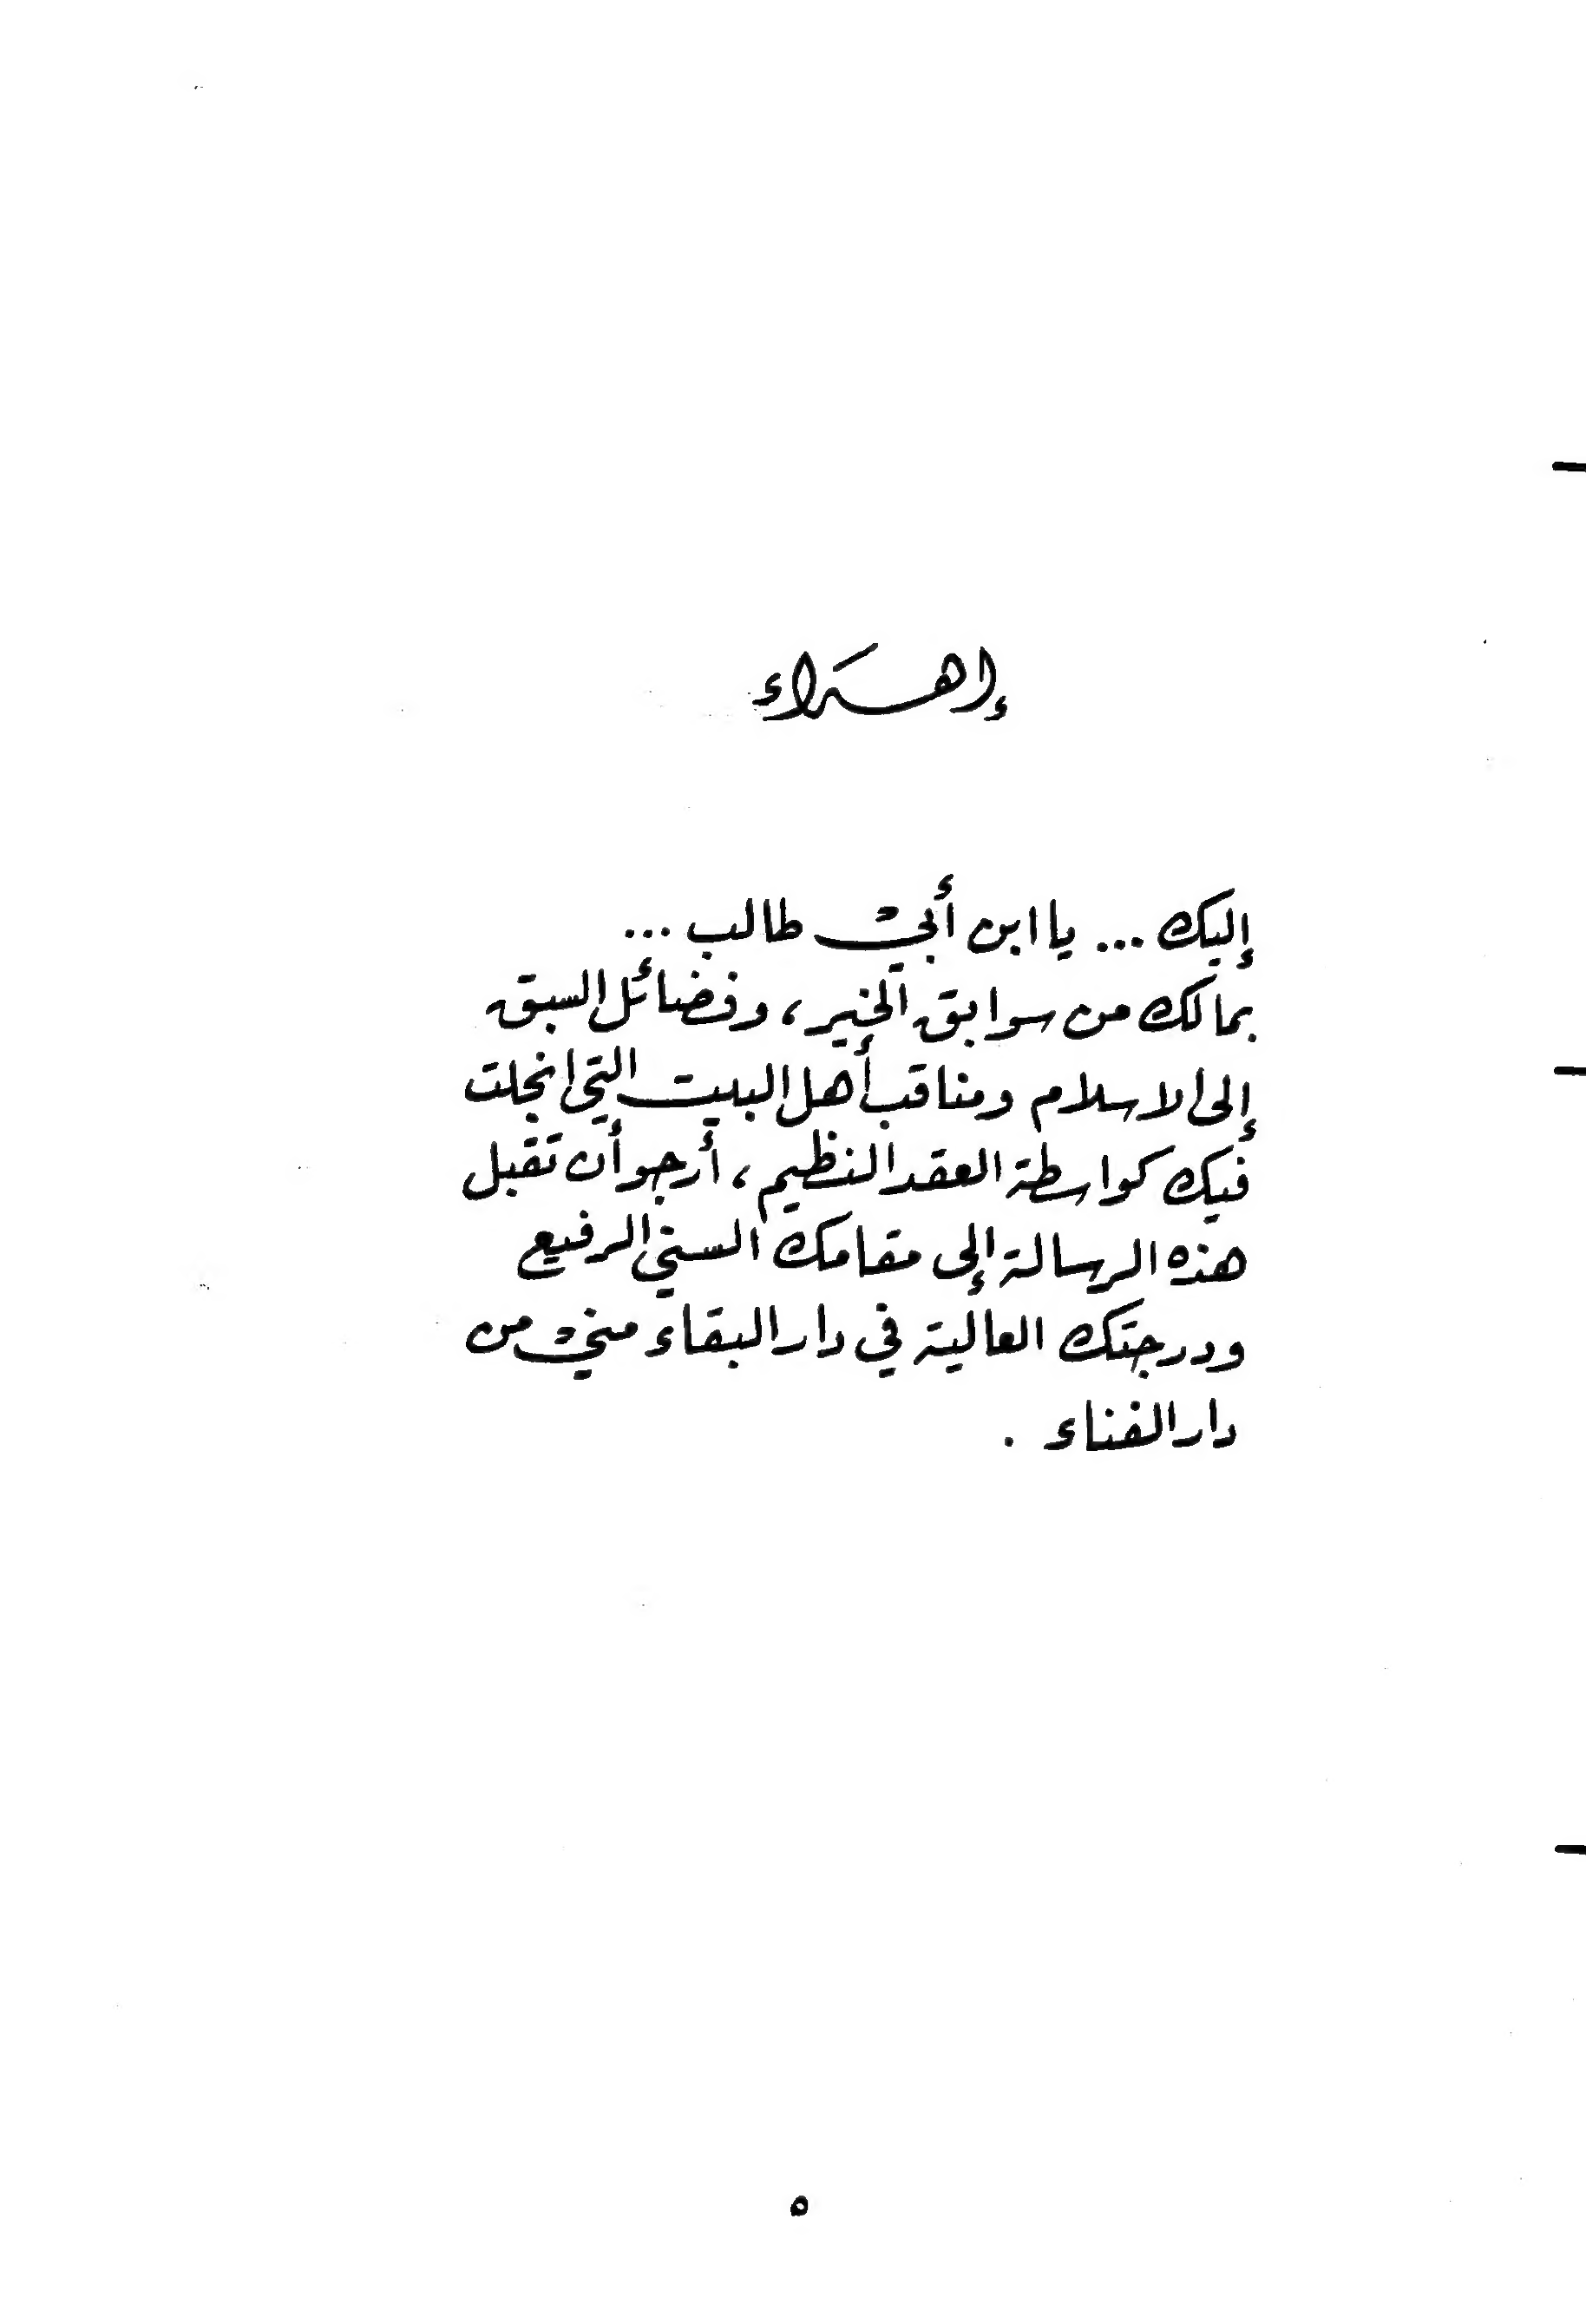 إهداء
إليك ... يا ابن أبي طالب ...
بمالك من سوابق الخير، وفضائل السبق
إلى الاسلام ومناقب أهل البيت التي انجلت
فيك كواسطة العقد النظيم، أرجو أن تقبل
هذه الرسالة إلى مقامك السني الرفيع
ودرجتك العالية في دار البقاء مني من
دار الفناء .
٥